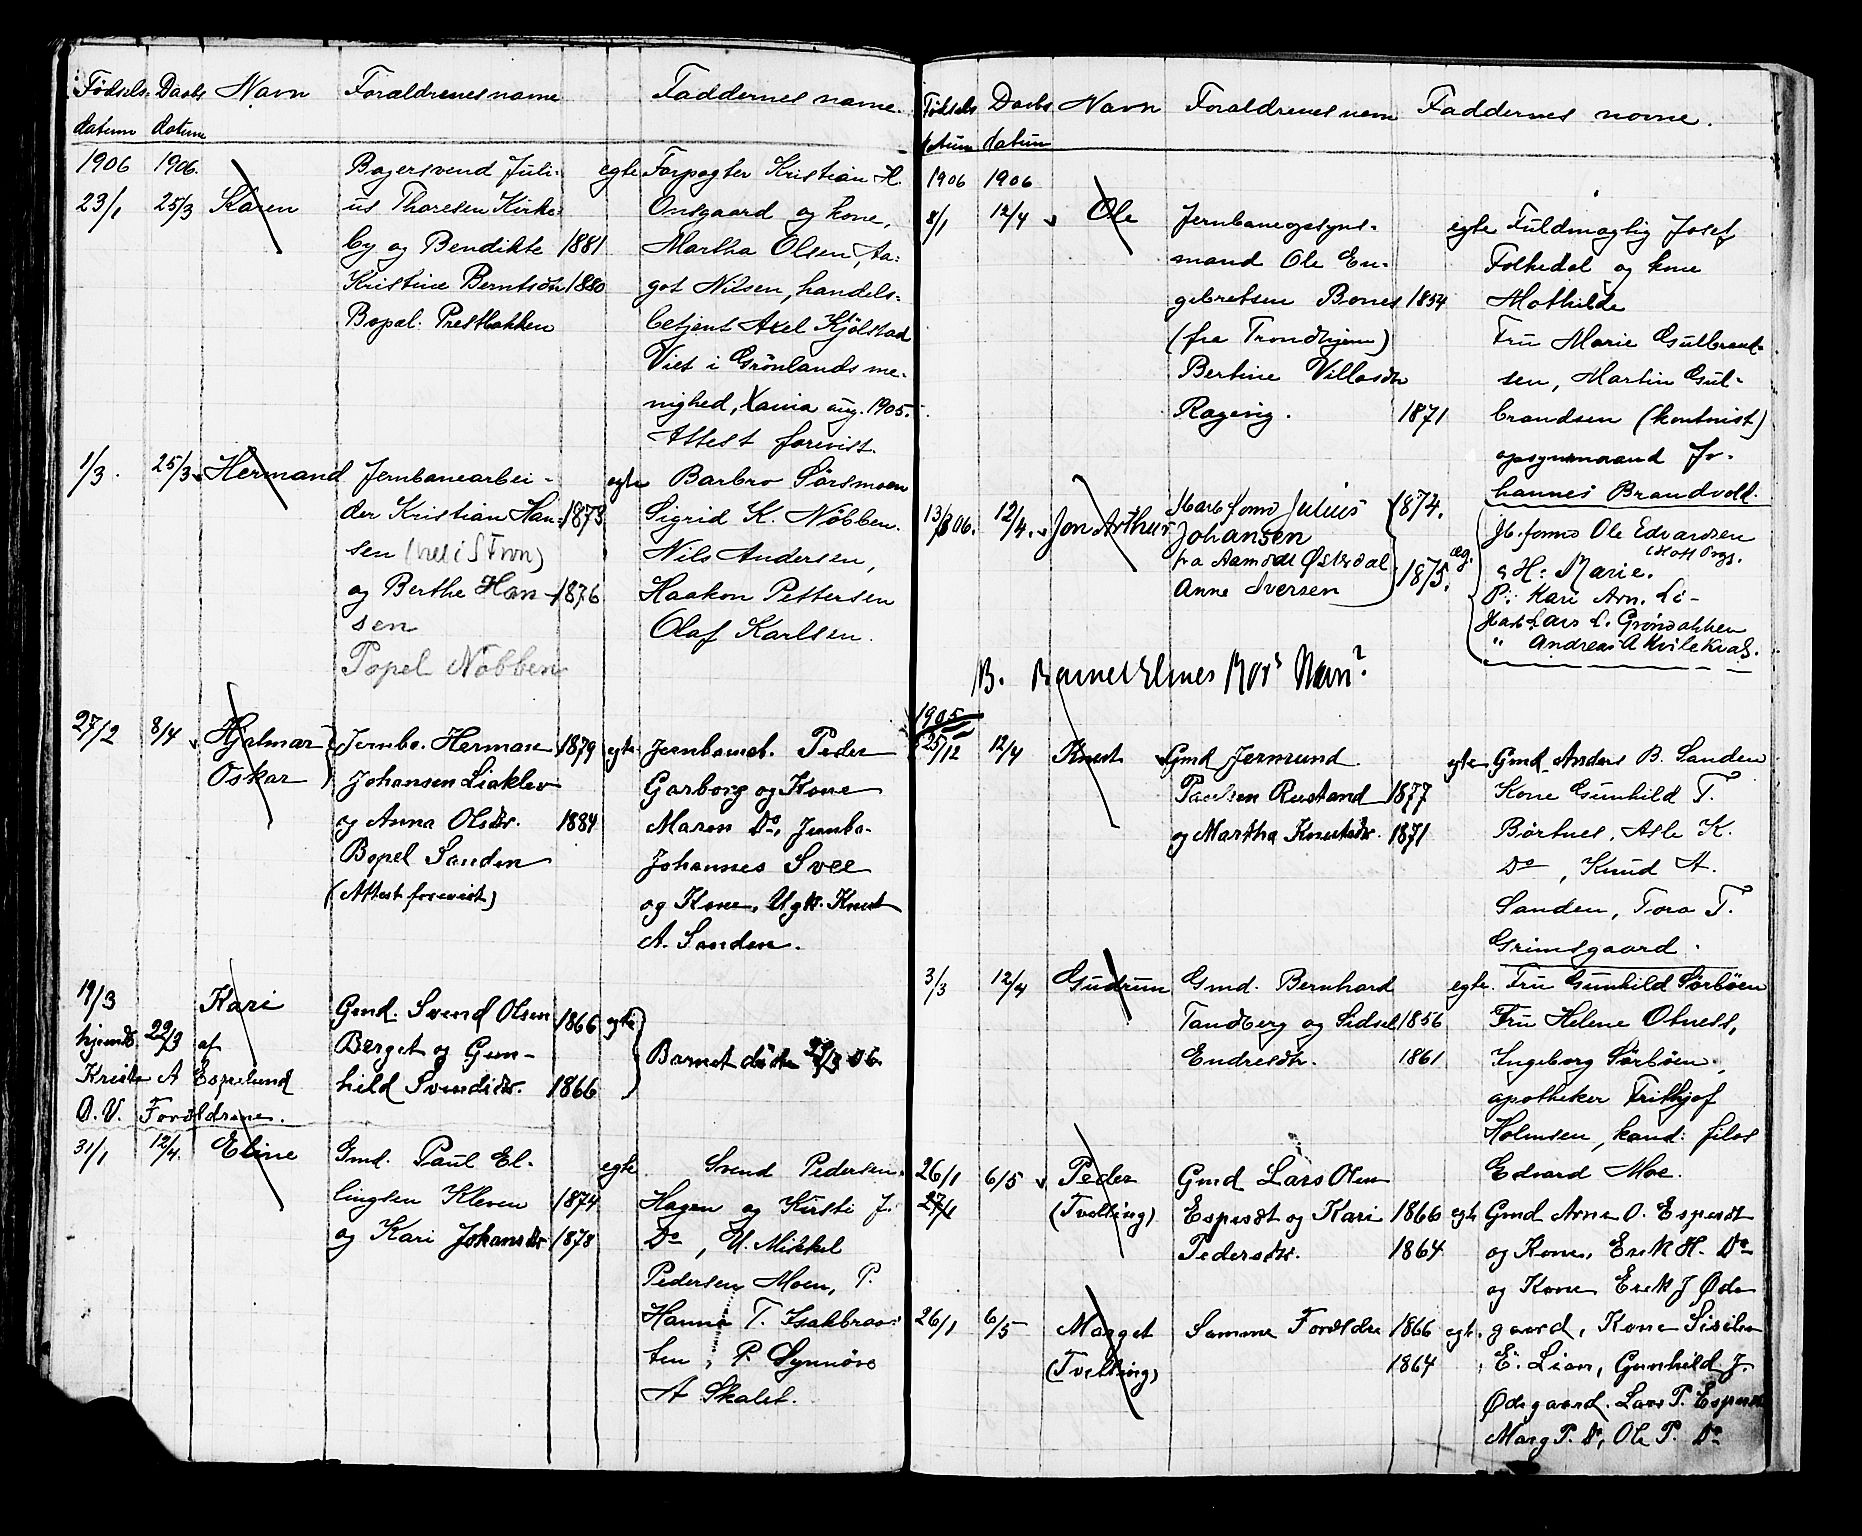 Fødsels- Daabs Navn Forældrenes navne Faddernes navne.
datum datum
1906 1906. Bagersvend Juli- egte Forpagter Kristian H.
23/1 25/3 Karen us Thoresen Kirke- Onsgaard og kone,
by og Bendikte 1881 Martha Olsen, Aa-
Kristine Berntsdtr 1880 got Nilsen, handels-
Bopæl: Prestbakken betjent Axel Kjølstad
Viet i Grønlands me-
nighed, Xania aug. 1905.
Attest forevist.
1/3. 25/3 Hermand Jernbanearbei- egte Barbro Sørsmoen
der Kristian Han- 1873 Sigrid K. Nøbben.
sen (viet i S Fron) Nils Andersen,
og Berthe Han- 1876 Haakon Pettersen
sen Olaf Karlsen.
Bopel Nøbben
27/2 8/4 Hjalmar Jernba. Herman 1879 egte Jernbaneb. Peder
Oskar Johansen Liaklev Garborg og Kone
og Anna Olsdtr. 1884 Maren Do, Jernba-
Bopel Sanden Johannes Svee
(Attest forevist) og Kone, Ugk. Knut
A. Sanden.
19/3 Kari Gmd. Svend Olsen 1866 egte
hjemdb. 22/3 af Berget og Gun- Barnet døde 22/3 06.
Kristi A Espelund hild Svendsdtr. 1866
O. V. Forældrene.
31/1 12/4. Eline Gmd. Paul El- egte Svend Pedersen
lingsen Kleven 1874 Hagen og Kirsti J.
og Kari Johansdtr 1878 Do, U. Mikkel
Pedersen Moen, P.
Hanna T. Isakbraa-
ten, P. Synnøve
A Skalet.
Fødsels Daabs Navn Forældrenes navn Faddernes navne.
datum datum
1906 1906
8/1 12/4 Ole Jernbaneopsyns- egte Fuldmægtig Josef
mand Ole En- Folkedal og kone
gebretsen Bones 1854 Mathilde
(fra Trondhjem) Fru Marie Gulbrand-
Bertine Villasdtr sen, Martin Gul-
Ragevig. 1871 brandsen (kontorist)
opsynsmand Jo-
hannes Brandvold.
13/3 06. 12/4. Jon Arthur Julius 1874. Ole Edvardsen
Johansen
fra Aamodt Østerdal æg. & H: Marie.
Anne Iversen 1875. P: Kari Arn. Li-
Lars L. Grønbakken
" Andreas A Kvilekval.
B. Navn?
1905
25/12 12/4 Knut Gmd Jermund egte Gmd. Anders B. Sanden
Paulsen Rustand 1877 Kone Gunhild T.
og Martha Knutsdtr. 1871 Børtnes, Asle K.
Do, Knud A.
Sanden, Tora T.
Grimsgaard.
3/3 12/4 Gudrun Gmd. Bernhard egte. Fru Gunhild Sørbøen
Tandberg og Sidsel 1856 Fru Helene Otness,
Endresdtr. 1861 Ingeborg Sørbøen,
apotheker Frithjof
Holmsen, kand: filos
Edvard Moe.
26/1 6/5 Peder Gmd Lars Olsen
27/1 (Tvilling) Espesæt og Kari 1866 egte Gmd Arne O. Espesæt
Pedersdtr. 1864 og Kone, Erik H. Do
og Kone Erik J Øde-
26/1 6/5 Marget Samme Forældre 1866 egte. gaard, Kone Sisilia
(Tvilling) 1864 E. Lien, Gunhild J.
Ødegaard. Lars P. Espesæt
Marg P. Do, Ole P. Do